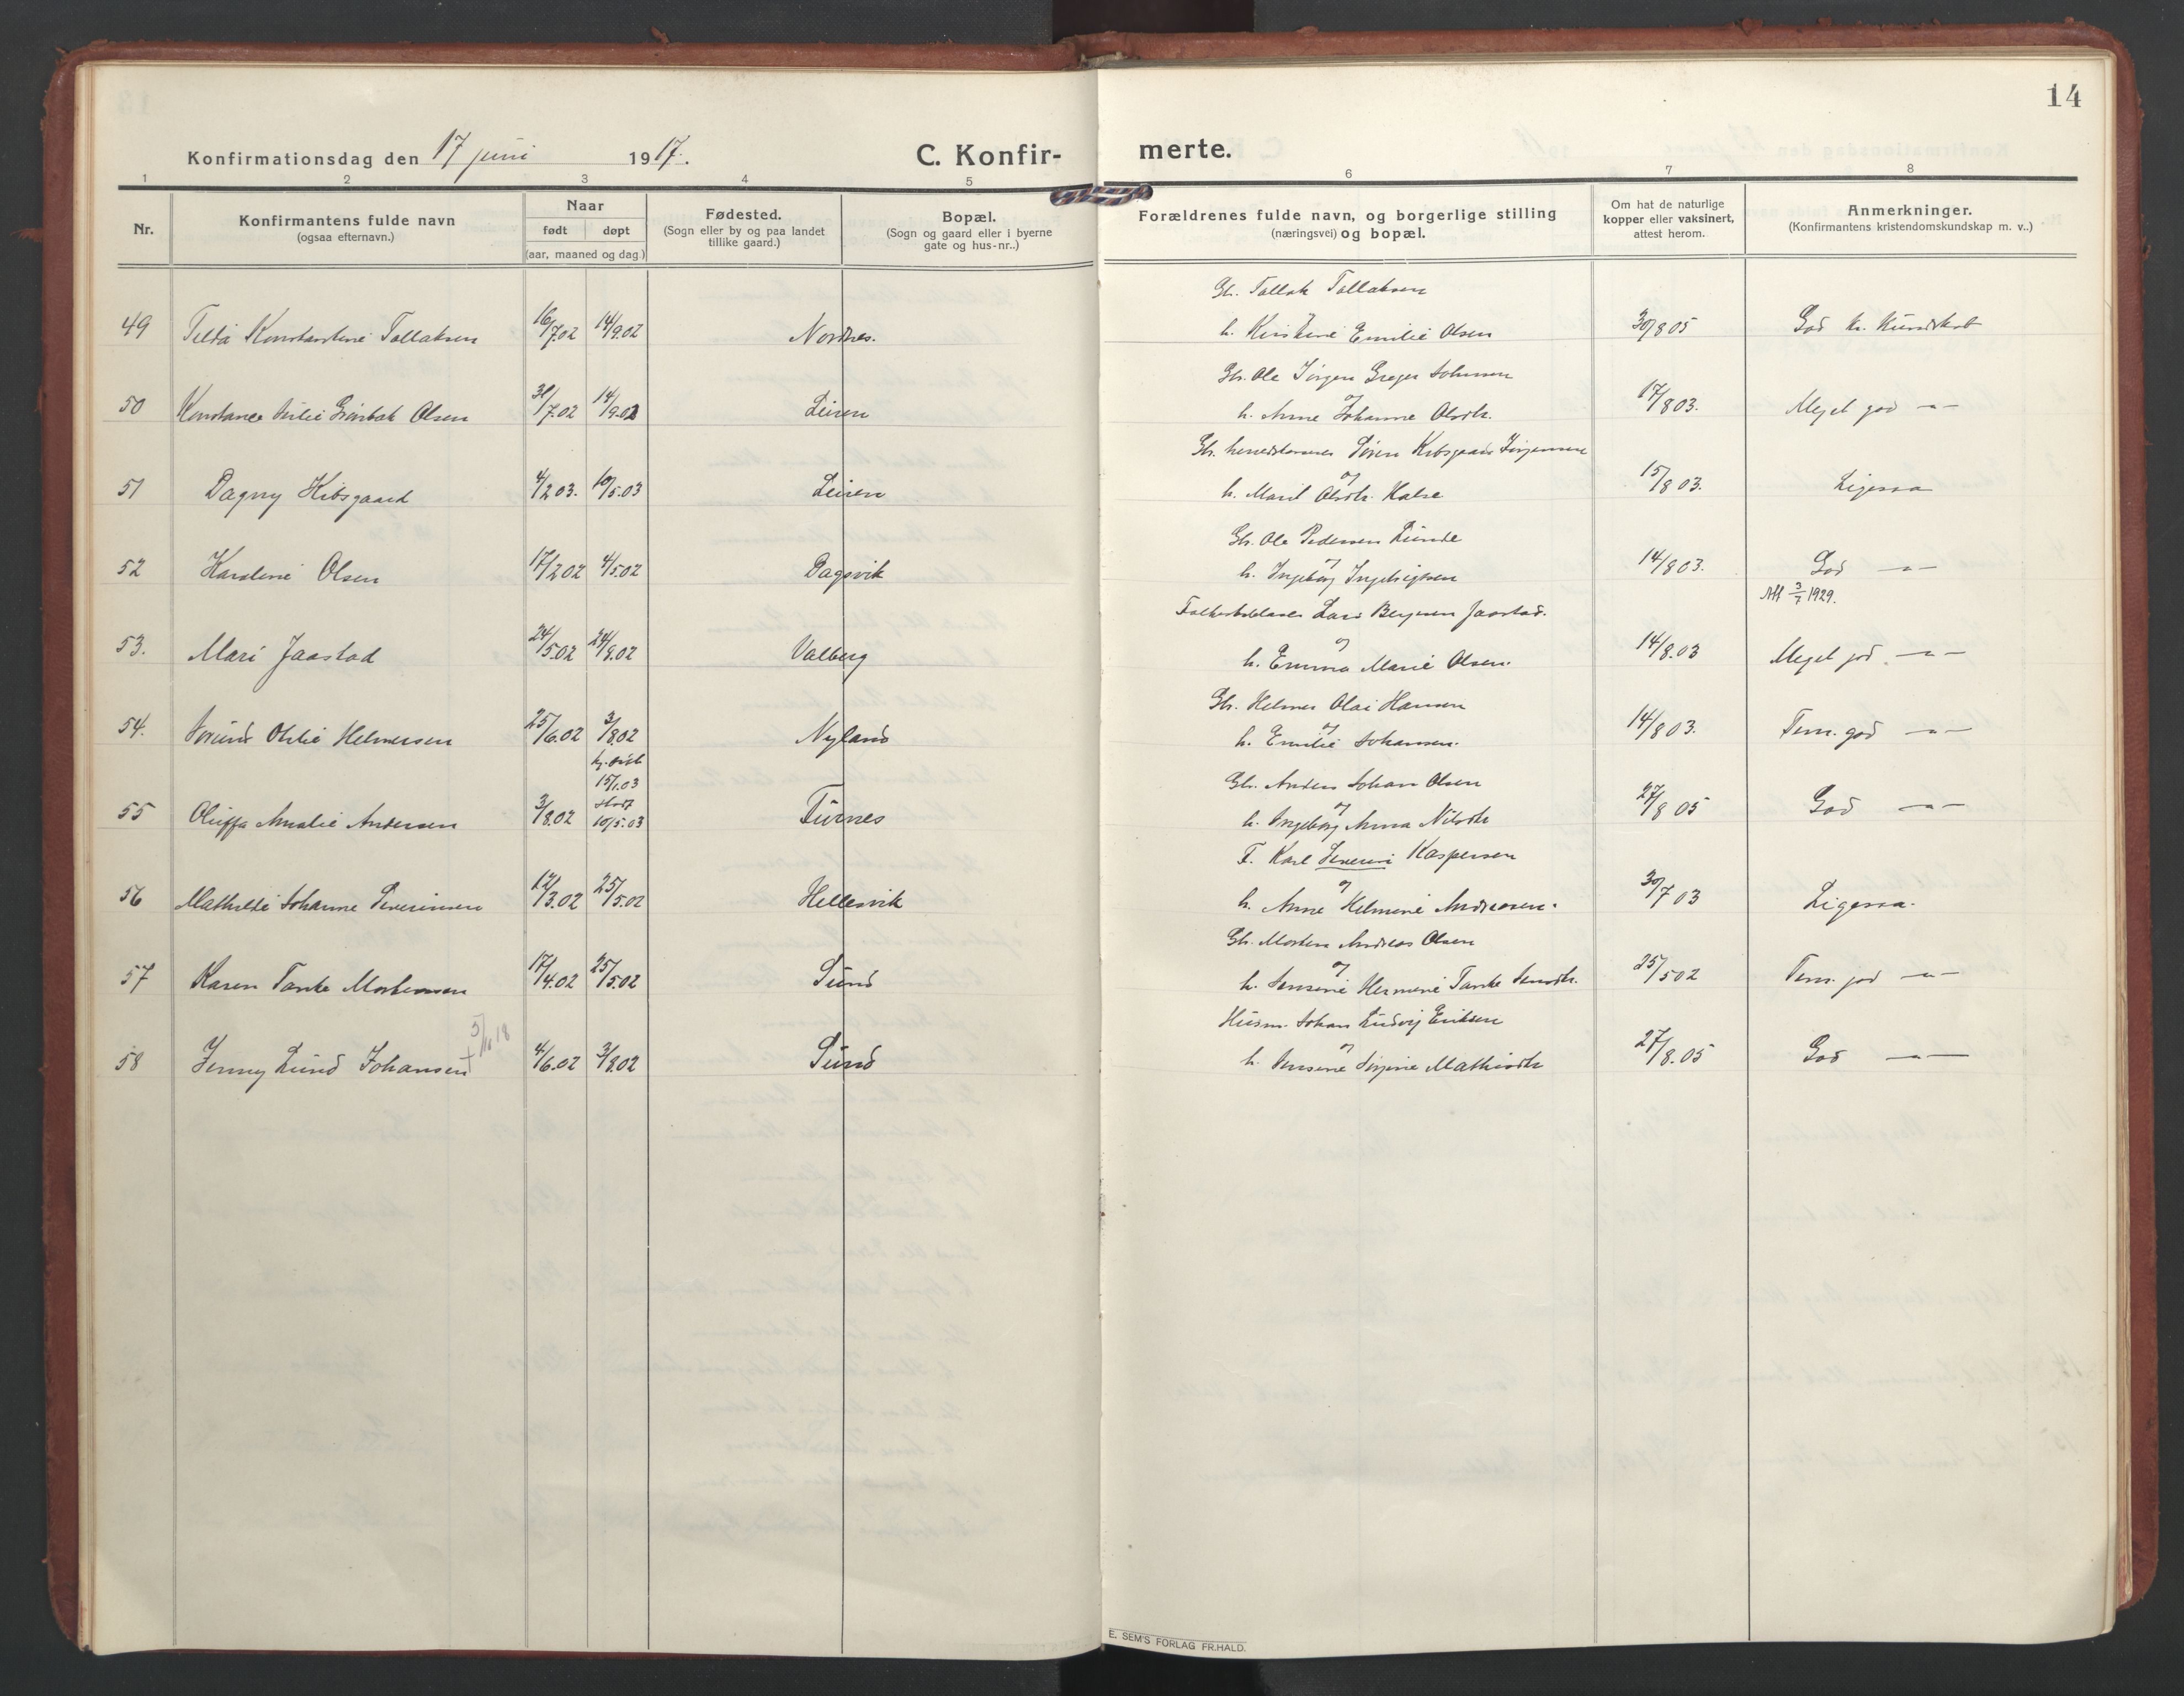 14
Konfirmationsdag den 17 juni 1917. C. Konfir- merte.
1 2 3 4 5 6 7 8
Nr. Konfirmantens fulde navn (ogsaa efternavn.) Naar født døpt (aar, maaned og dag.) Fødested. (Sogn eller by og paa landet tillike gaard.) Bopæl. (Sogn og gaard eller i byerne gate og hus-nr..) Forældrenes fulde navn, og borgerlige stilling (næringsvei) og bopæl. Om hat de naturlige kopper eller vaksinert, attest herom. Anmerkninger. (Konfirmantens kristendomskundskap m. v..)
Gb. Tollak Tollaksen
49 Konstantine Tollaksen 16/7.02 14/9.02 Nordnes. h. Kirstine Emilie Olsen 30/8 05 God kr. Kundskab
Gb. Ole Jørgen Greger Johnsen
og
50 Konstance Julie Olsen 31/7.02 14/9.02 Leiren h. Anne Johanne Olsdtr. 17/8 03. Meget god -"-
Gb. Søren Kibsgaard Jørgensen
og
51 Dagny Kibsgaard 4/2 03. 10/5.03 Leiren h. Marit Olsdtr. 15/8 03. Ligesaa
Gb. Ole Pedersen Lunde
og
52 Karoline Olsen 17/2 02 4/5.02 Dagsvik h. Ingeborg 14/8 03. God -"-
Att 3/7 1929.
Lars Jaastad.
og
53. Mari Jaastad 24/5.02 24/9.02 Valberg h. Emma Marie Olsen. 14/8.03 Meget god. -"-
Gb. Helmer Olai Hansen
og
54. Jorund Otelie Helmersen 25/6.02 3/8.02 Nyland h. Emilie Johansen. 14/8 03. Tem. god -"-
15/1.03
Gb. Anders Johan Olsen
og
55 Oluffa Amalie Andersen 3/8.02 10/5.03 Furnes h. Ingeborg Anna Nilsdtr 27/8 05 God -"-
F. Karl Severin Kaspersen
og
56 Mathilde Johanne Severinsen 12/3.02 25/5.02 Hellesvik h. Anne Helmine Andreasen. 30/7 03 Ligesaa.
Gb. Morten Andreas Olsen
og
57 Karen Tanke Mortensen 17/4.02 25/5.02 Sund h. Jensine Hermine Tanke Jensdtr. 25/5 02 Tem. god -"-
Husm. Johan Ludvig Eriksen
og
58 Jenny Lund Johansen † 5/11 18 4/6.02 3/8.02 Sund h. Jensine Mathisdtr 27/8.05 God -"-
E. SEM'S FORLAG FR.HALD.